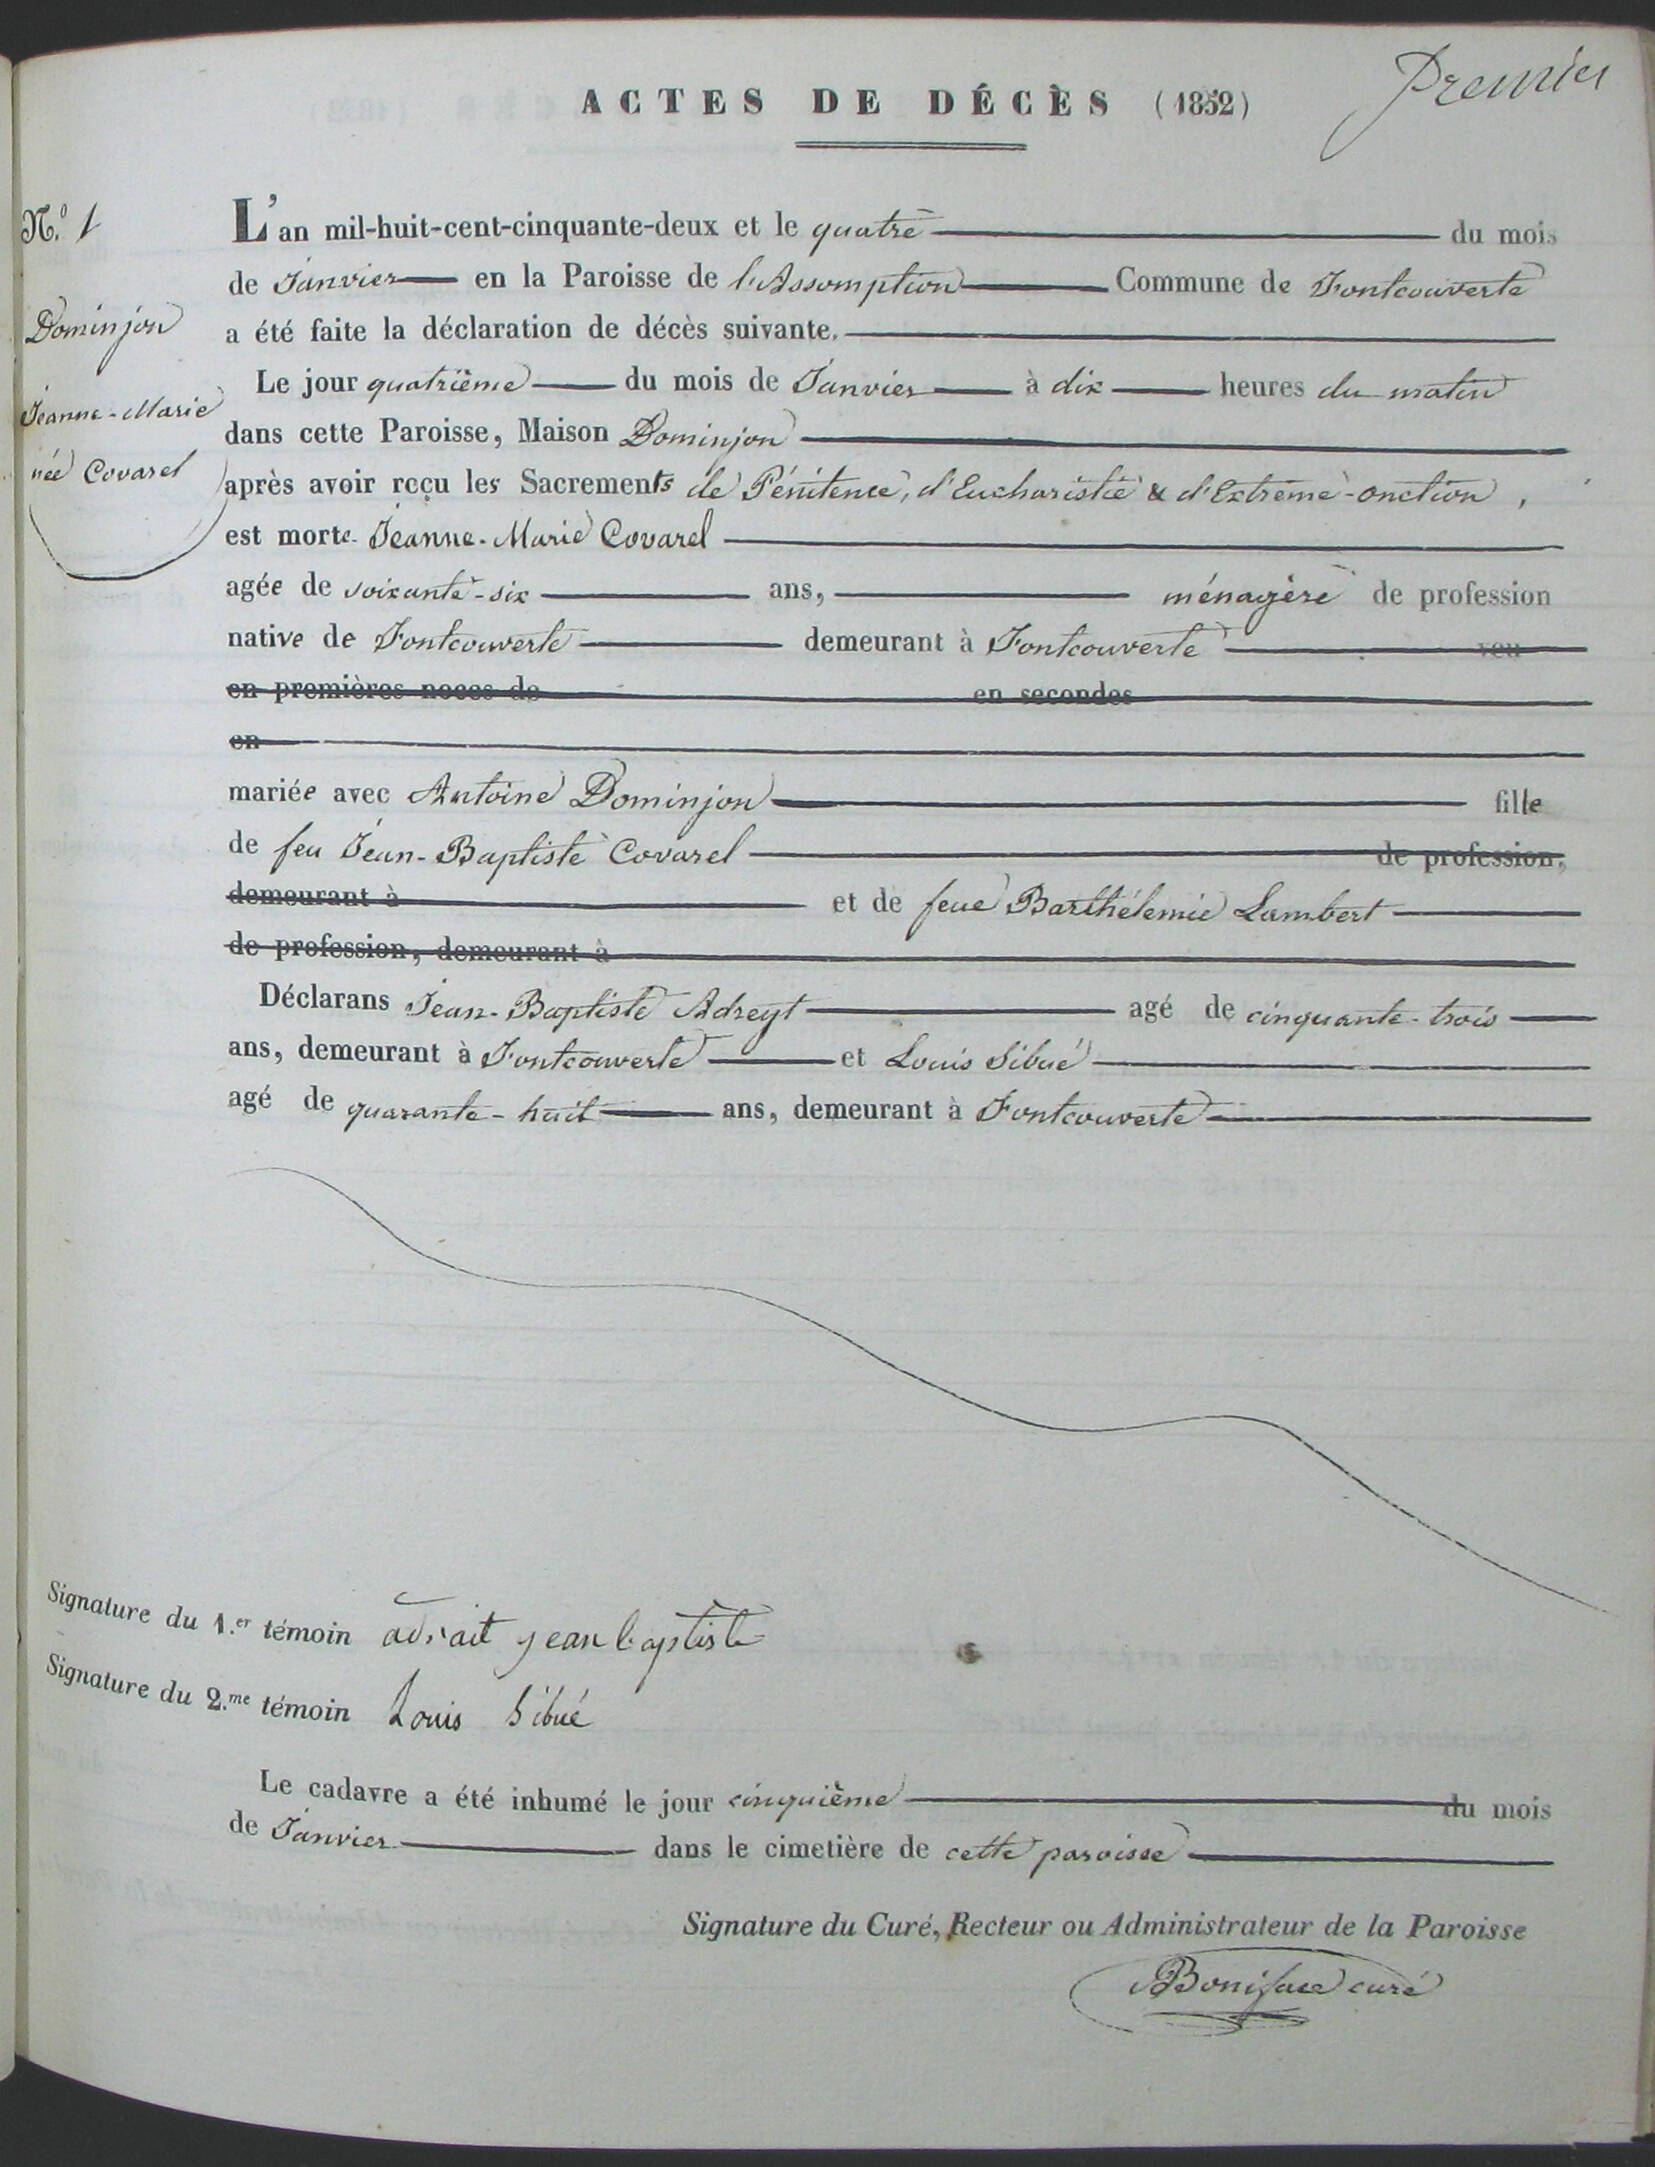 Premier
ACTES DE DÉCÈS (1852)
N.º 1
Dominjon
Jeanne-Marie
née Covarel
L'an mil-huit-cent-cinquante-deux et le quatre du mois
de Janvier en la Paroisse de l'Assomption Commune de Fontcouverte
a été faite la déclaration de décès suivante.
Le jour quatrième du mois de Janvier à dix heures du matin
dans cette Paroisse, Maison Dominjon
après avoir reçu les Sacrements de Pénitence, d'Eucharistie & d'Extrême-onction,
est morte Jeanne-Marie Covarel
agée de soixante-six ans, ménagère de profession
native de Fontcouverte demeurant à Fontcouverte veu
en premières noces de en secondes
en
mariée avec Antoine Dominjon fille
de feu Jean-Baptiste Covarel de profession,
demeurant à et de feue Barthélemie Lambert
de profession, demeurant à
Déclarans Jean-Baptiste Adreyt agé de cinquante-trois
ans, demeurant à Fontcouverte et Louis Sibué
agé de quarante-huit ans, demeurant à Fontcouverte
Signature du 1.er témoin adrait jean baptiste
Signature du 2.me témoin Louis Sibué
Le cadavre a été inhumé le jour cinquième du mois
de Janvier dans le cimetière de cette paroisse
Signature du Curé, Recteur ou Administrateur de la Paroisse
Boniface curé